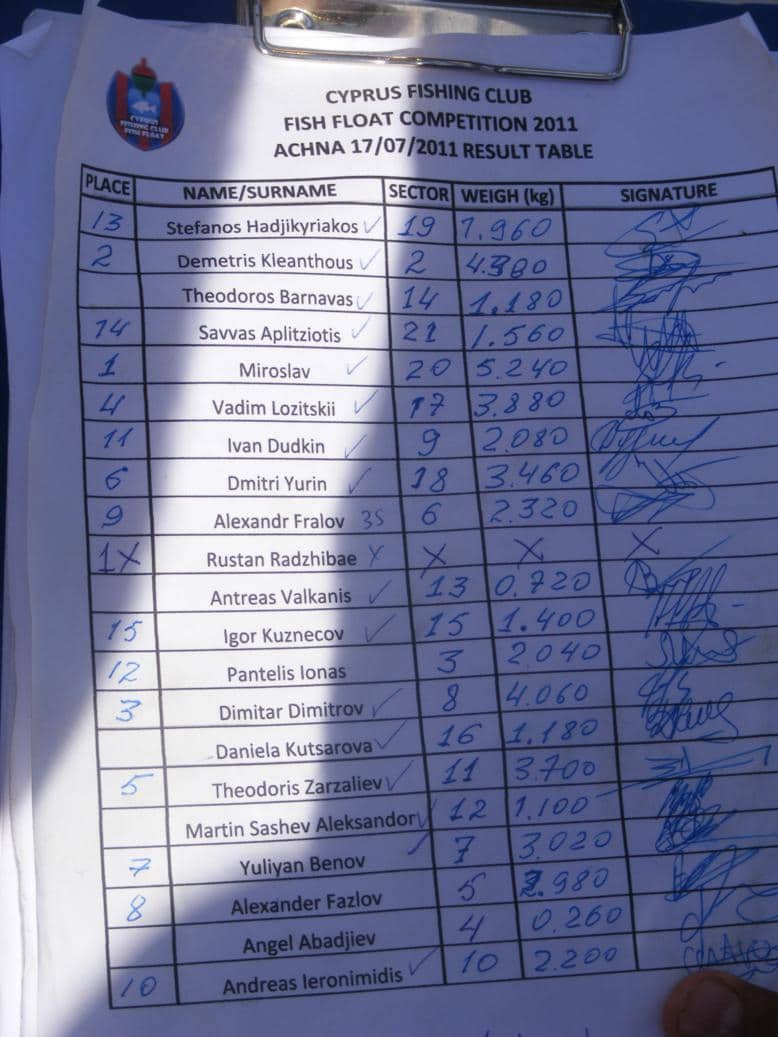 CYPRUS
FISHING CLUB
FISH FLOAT
CYPRUS FISHING CLUB
FISH FLOAT COMPETITION 2011
ACHNA 17/07/2011 RESULT TABLE
PLACE NAME/SURNAME SECTOR WEIGH (kg) SIGNATURE
13 Stefanos Hadjikyriakos ✓ 19 1.960
2 Demetris Kleanthous ✓ 2 4.380
Theodoros Barnavas ✓ 14 1.180
14 Savvas Aplitziotis ✓ 21 1.560
1 Miroslav ✓ 20 5.240
4 Vadim Lozitskii ✓ 17 3.880
11 Ivan Dudkin ✓ 9 2.080
6 Dmitri Yurin ✓ 18 3.460
9 Alexandr Fralov 35 6 2.320
1X Rustan Radzhibae X X X X
Antreas Valkanis ✓ 13 0.720
15 Igor Kuznecov ✓ 15 1.400
12 Pantelis Ionas 3 2.040
3 Dimitar Dimitrov ✓ 8 4.060
Daniela Kutsarova ✓ 16 1.180
5 Theodoris Zarzaliev ✓ 11 3.700
Martin Sashev Aleksandor ✓ 12 1.100
7 Yuliyan Benov ✓ 7 3.020
8 Alexander Fazlov 5 2.980
Angel Abadjiev 4 0.260
10 Andreas Ieronimidis ✓ 10 2.200